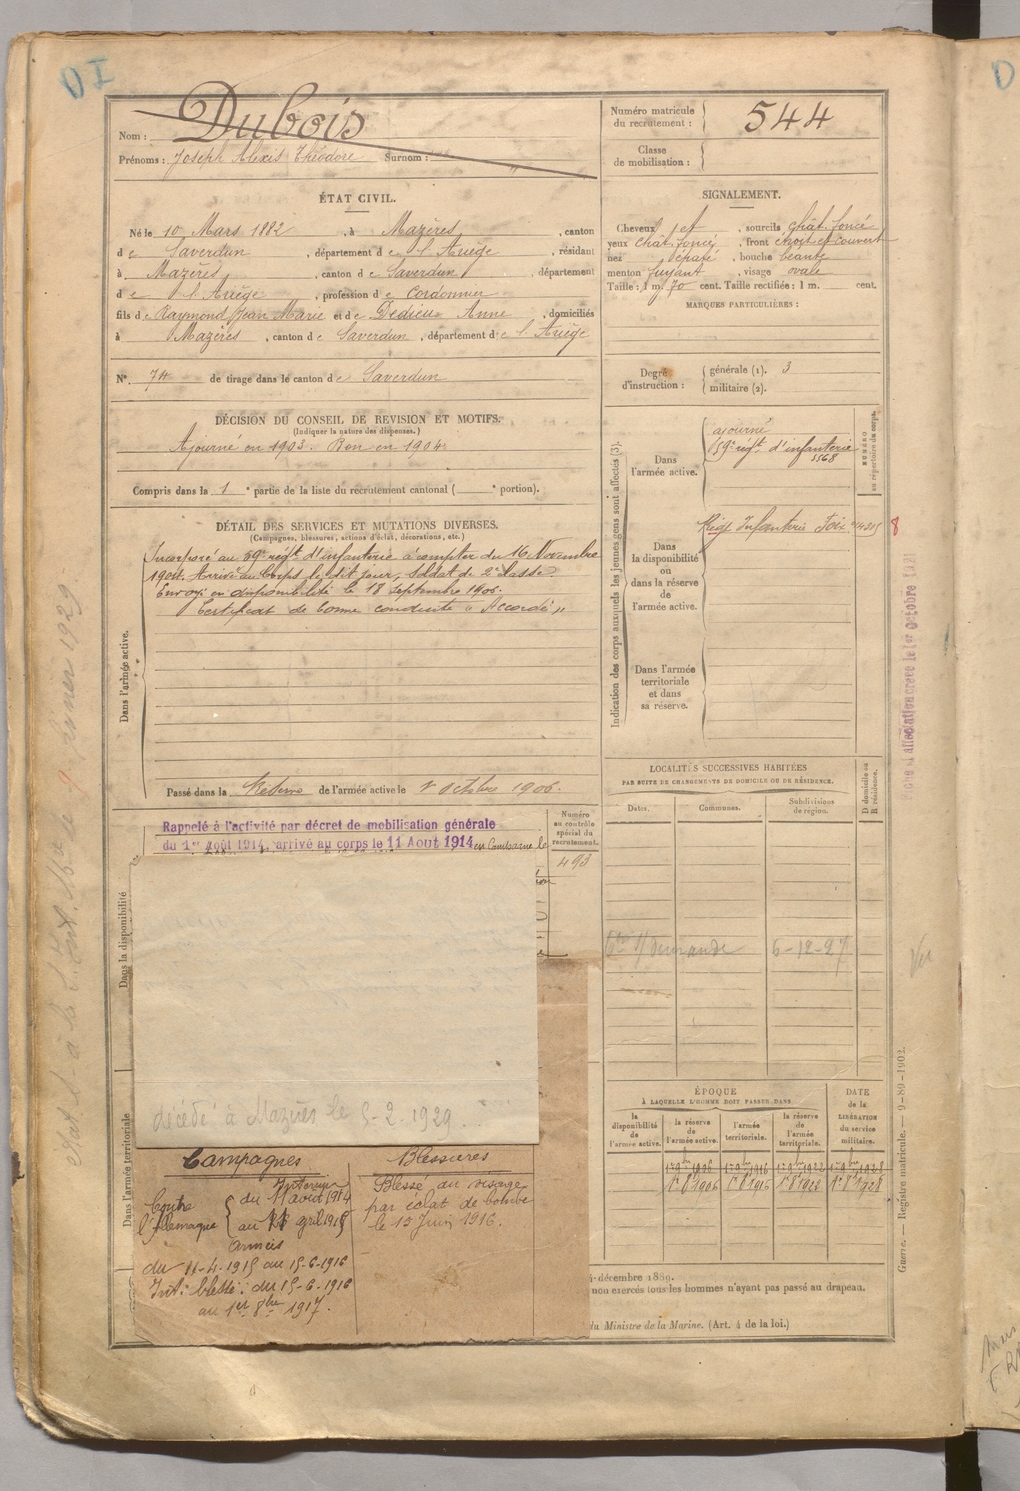 DI
Nom : Dubois
Prénoms : Joseph Alexis Théodore Surnom :
Numéro matricule du recrutement : 544
Classe de mobilisation :
ÉTAT CIVIL.
Né le 10 Mars 1882, à Mazères, canton
de Saverdun, département de l'Ariège, résidant
à Mazères, canton de Saverdun, département
de l'Ariège, profession de Cordonnier
fils de Raymond Jean Marie et de Dedieu Anne, domiciliés
à Mazères, canton de Saverdun, département de l'Ariège
N° 74 de tirage dans le canton de Saverdun
SIGNALEMENT.
Cheveux et, sourcils chât. foncé
yeux chât. foncé, front étroit et couvert
nez épaté, bouche béante
menton fuyant, visage ovale
Taille : 1 m. 70 cent. Taille rectifiée : 1 m. cent.
MARQUES PARTICULIÈRES :
Degré d'instruction :
générale (1). 3
militaire (2).
DÉCISION DU CONSEIL DE REVISION ET MOTIFS.
(Indiquer la nature des dispenses.)
Ajourné en 1903. Bon en 1904.
Compris dans la 1e partie de la liste du recrutement cantonal ( e portion).
DÉTAIL DES SERVICES ET MUTATIONS DIVERSES.
(Campagnes, blessures, actions d'éclat, décorations, etc.)
Dans l'armée active.
Incorporé au 59e régt d'infanterie à compter du 16 Novembre
1904. Arrivé au Corps le dit jour, soldat de 2e classe.
Envoyé en disponibilité le 18 septembre 1906.
Certificat de bonne conduite " Accordé "
Passé dans la Réserve de l'armée active le 1er Octobre 1906.
Indication des corps auxquels les jeunes gens sont affectés (3).
NUMÉRO au répertoire du corps.
Dans l'armée active.
ajourné
59e régt d'infanterie
5568
Dans la disponibilité ou dans la réserve de l'armée active.
Rég. Infanterie Foix
8
Dans l'armée territoriale et dans sa réserve.
LOCALITÉS SUCCESSIVES HABITÉES
PAR SUITE DE CHANGEMENTS DE DOMICILE OU DE RÉSIDENCE.
Dates.
Communes.
Subdivisions de région.
D domicile ou R résidence.
demande 6-12-27
Numéro au contrôle spécial du recrutement.
493
Rappelé à l'activité par décret de mobilisation générale
du 1er Août 1914, arrivé au corps le 11 Aout 1914
Dans la disponibilité
décédé à Mazères le 5-2-1929.
Dans l'armée territoriale
Campagnes
Contre l'Allemagne
Intérieur
du 11 août 1914
au 11 avril 1915
Armées
du 11-4-1915 au 15-6-1916
Int. blessé : du 15-6-1916
au 1er 8bre 1917.
Blessures
Blessé au visage
par éclat de bombe
le 15 Juin 1916.
ÉPOQUE
À LAQUELLE L'HOMME DOIT PASSER DANS
la disponibilité de l'armée active.
la réserve de l'armée active.
l'armée territoriale.
la réserve de l'armée territoriale.
DATE de la LIBÉRATION du service militaire.
1er 9bre 1906 1er 9bre 1916 1er 9bre 1922 1er 9bre 1928
1er 8 1906 1er 8 1916 1er 8 1922 1er 8 1928
décembre 1889.
non exercés tous les hommes n'ayant pas passé au drapeau.
du Ministre de la Marine. (Art. 4 de la loi.)
Guerre. — Registre matricule. — 9-89-1902.
Vu
D